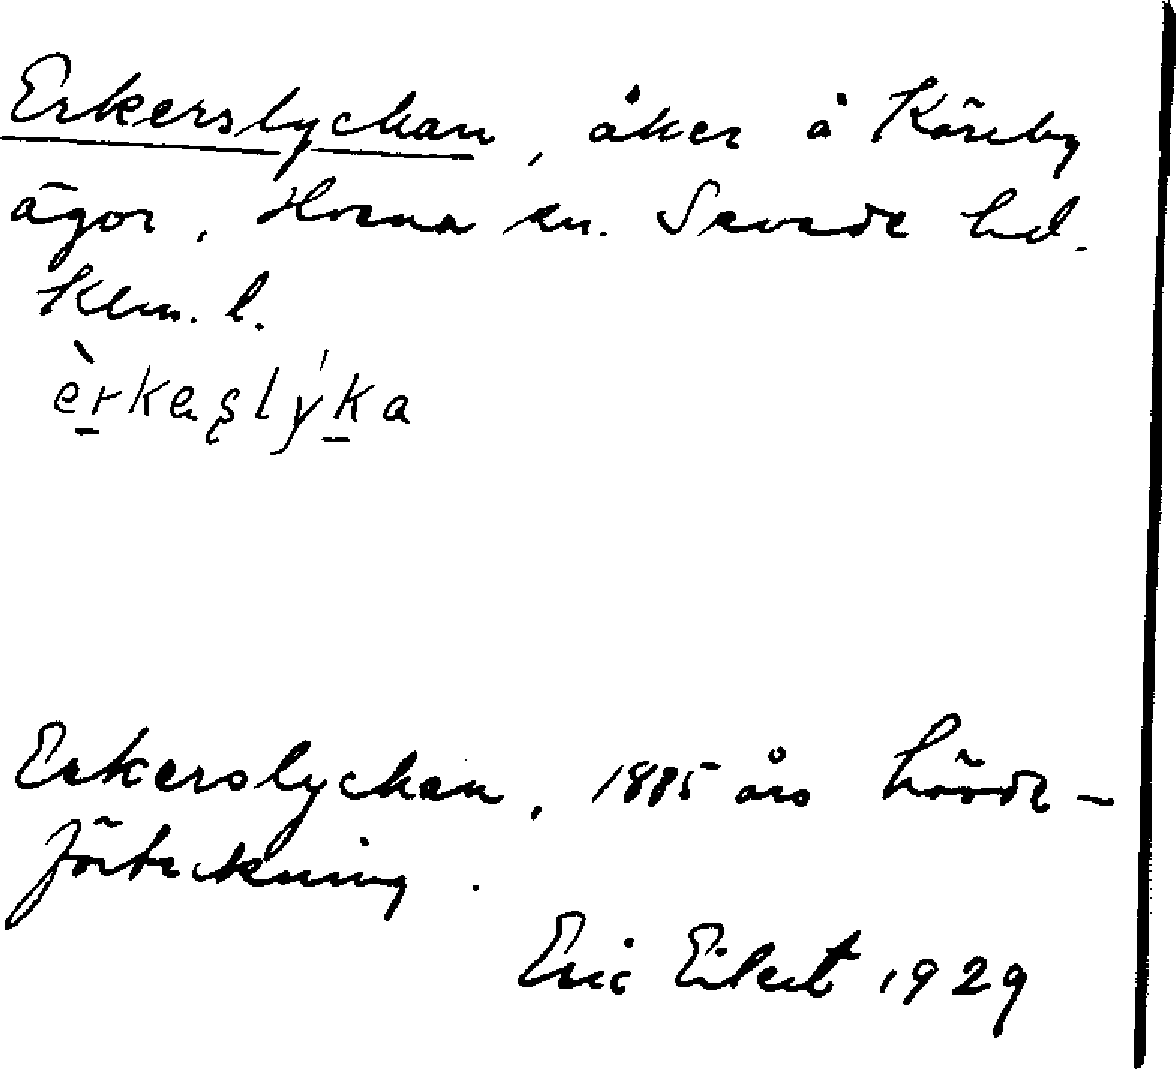 Erkerslyckan, åker å Käreby
ägor, Hvena sn. Sevede hd.
Klm. l.
èrkeʂlýka
Erkerslyckan, 1885 års hävde-
förteckning.
Eric Eilert 1929